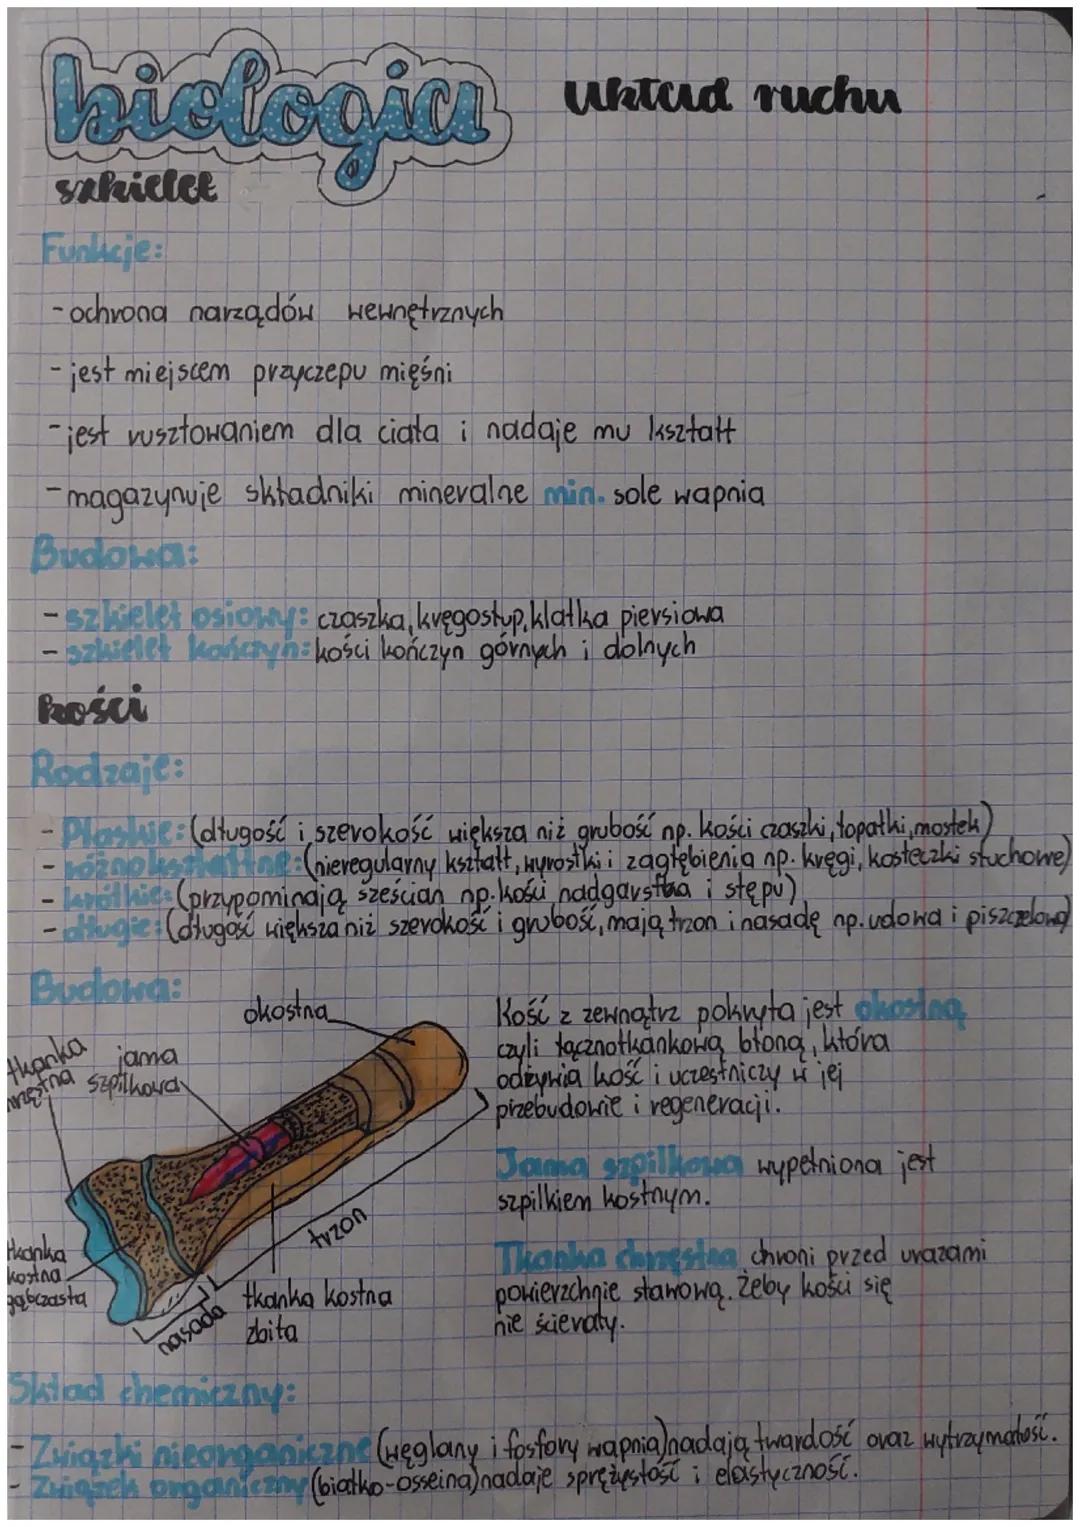 biologia
Układ ruchu
szkielet
Funkcje:
- ochrona narządów wewnętrznych
- jest miejscem przyczepu mięśni
- jest rusztowaniem dla ciała i nadaje mu kształt
- magazynuje składniki mineralne min. sole wapnia
Budowa:
- szkielet osiowy: czaszka, kręgosłup, klatka piersiowa
- szkielet kończyn: kości kończyn górnych i dolnych
Kości
Rodzaje:
- Płaskie: (długość i szerokość większa niż grubość np. kości czaszki, łopatki, mostek)
- różnokształtne: (nieregularny kształt, wyrostki i zagłębienia np. kręgi, kosteczki słuchowe)
- krótkie: (przypominają sześcian np. kości nadgarstka i stępu)
- długie: (długość większa niż szerokość i grubość, mają trzon i nasadę np. udowa i piszczelowa)
Budowa:
okostna
tkanka
chrzęstna
jama
szpilkowa
tkanka
kostna
gąbczasta
nasada
trzon
tkanka kostna
zbita
Kość z zewnątrz pokryta jest okostną
czyli łącznotkankową błoną, która
odżywia kość i uczestniczy w jej
przebudowie i regeneracji.
Jama szpilkowa wypełniona jest
szpilkiem kostnym.
Tkanka chrzęstna chroni przed urazami
powierzchnie stawową. Żeby kości się
nie ścierały.
Skład chemiczny:
- Związki nieorganiczne (węglany i fosfory wapnia) nadają twardość oraz wytrzymałość.
- Związek organiczny (białko-osseina) nadaje sprężystość i elastyczność.